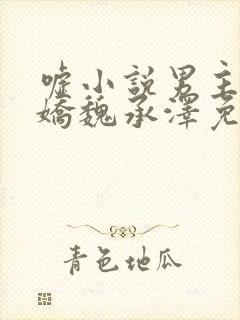 嘘小説男主
嬌魏承澤免
青色地瓜